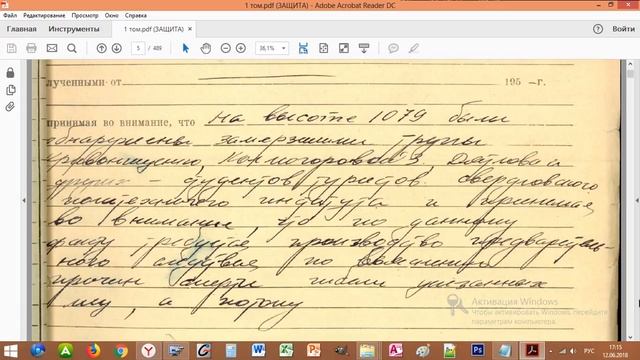 1 том.pdf (ЗАЩИТА) - Adobe Acrobat Reader DC
Файл Редактирование Просмотр Окно Справка
Главная Инструменты 1 том.pdf (ЗАЩИТА) × Войти
5 / 489 36,1%
лученными от 195 -г.
принимая во внимание, что На высоте 1079 были
обнаружены замерзшими трупы
Колмогоровой З Дятлова и
других - студентов туристов свердловского
политехничного института и принимая
во внимание, что по данному
факту требуется производство предваритель-
ного следствия по выявлению
причин смерти указанных
лиц, а потому
Активация Windows
Чтобы активировать Windows, перейдите
параметрам компьютера.
РУС
17:15
12.06.2018